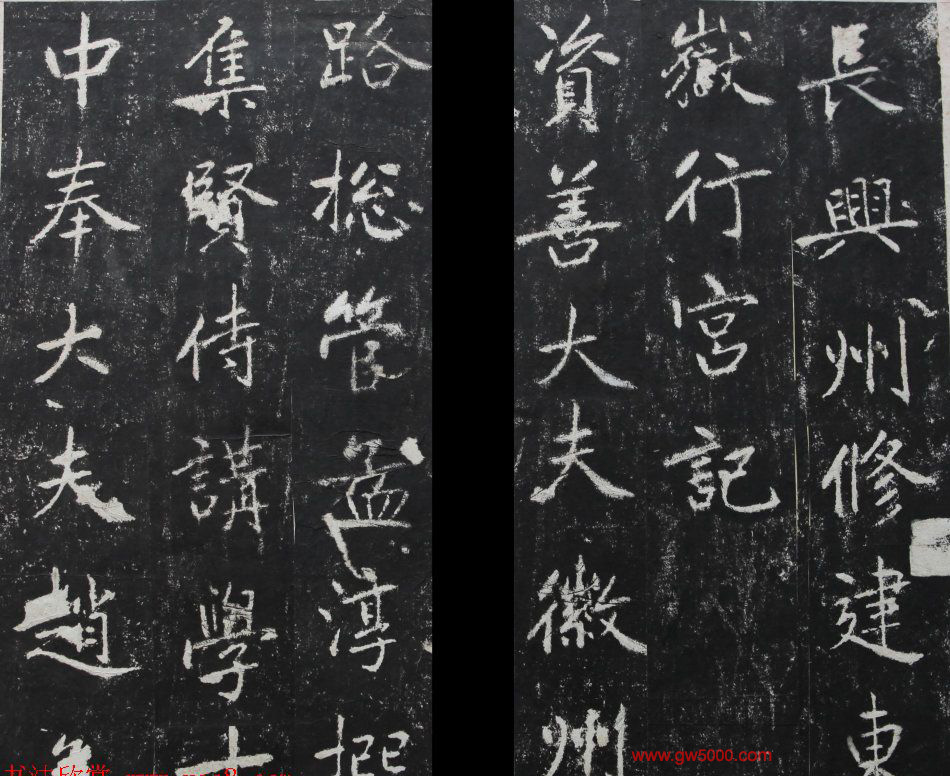 長興州修建東
嶽行宮記
資善大夫徽州
路総管孟淳撰
集賢侍講學士
中奉大夫趙孟
www.gw5000.com
书法欣赏